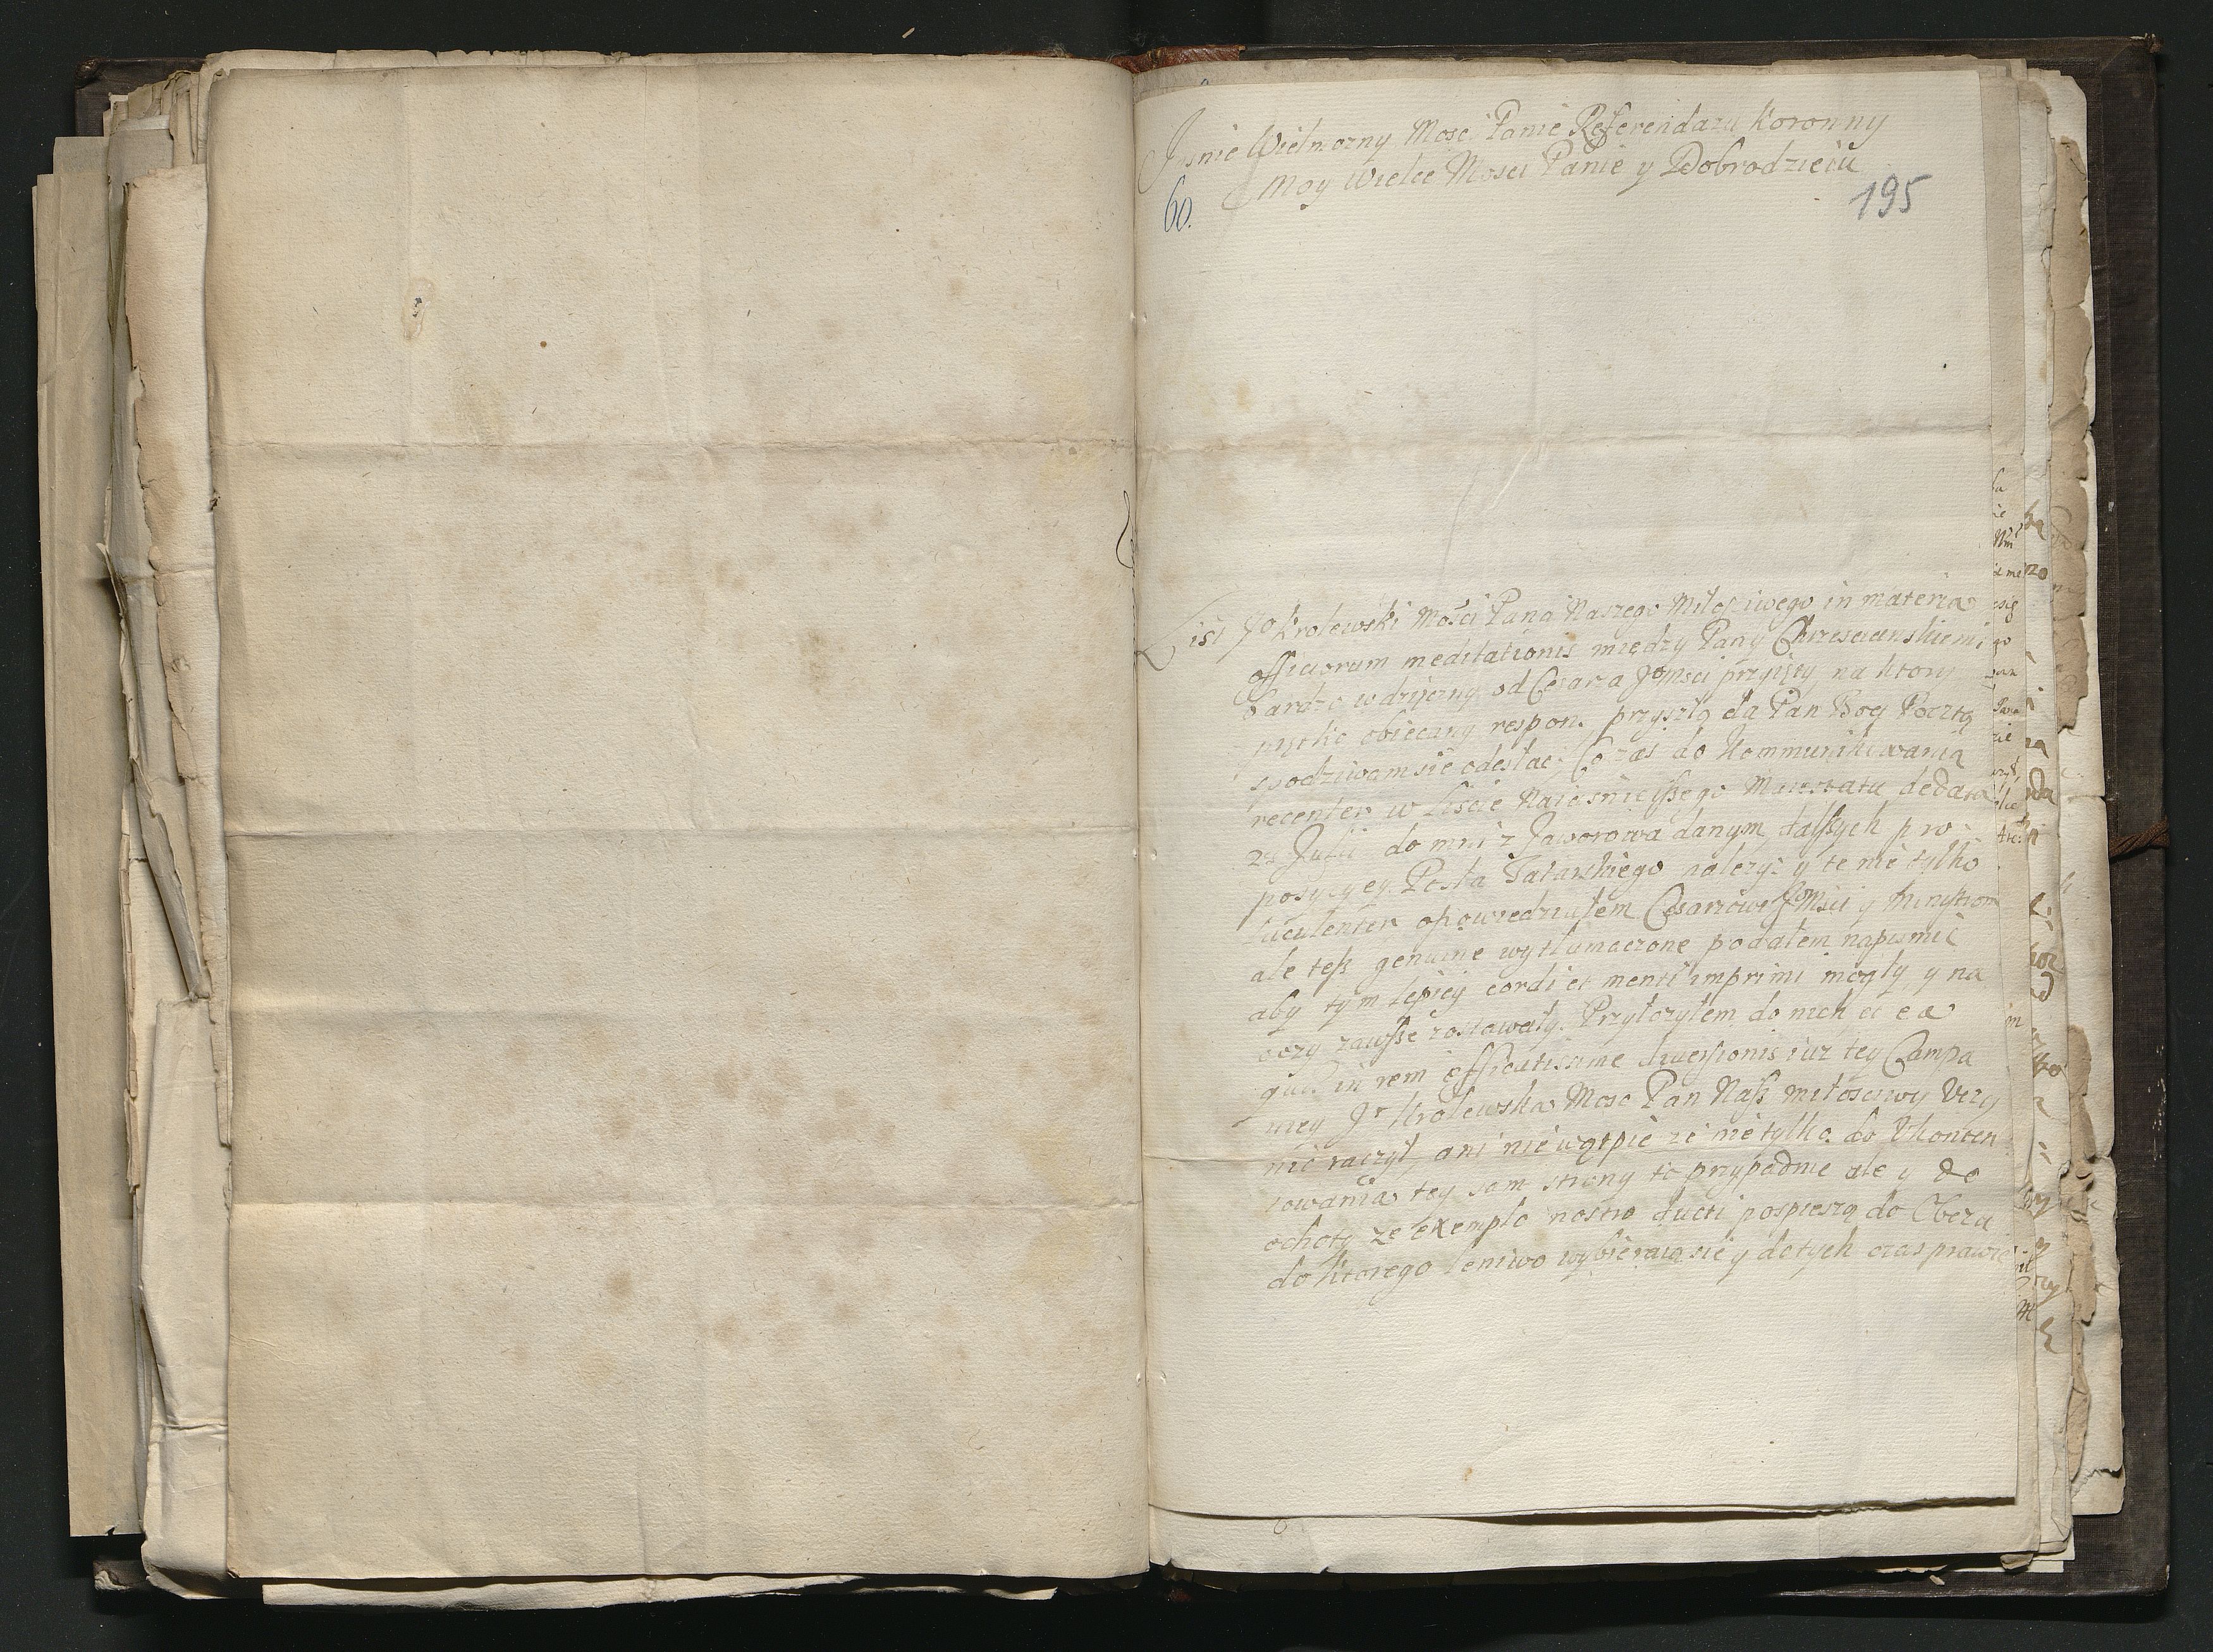 Jasnie Wielmozny Mosc Panie Referendazu Koronny
Moy Wielce Mosci Panie y Dobrodzieiu
60.
195
List Jo Krolewski Mości Pana Naszego Miłosciwego in materia
officiorum meditationis między Pany Chrzescianskiemi
bardzo wdzięczny od Cesarza Jo Msci przyięty, na ktory
prętko obiecany respons, przyszłą da Pan Bog Pocztą
spodziwam sie odesłac. Co zas do Kommunikowania
recenter w Liscie Naiasnieyszego Maiestatu dedata
23 Julii do mnie z Jaworowa danym, dalszych pro
pozycyey Posła Tatarskiego nalezy: y te nie tylko
luculenter opowiedziałem Cesarzowi Jo Msci y Ministrom
ale tesz genuine wytłumaczone podałem na pismie
aby tym lepiey cordi et menti imprimi mogły, y na
oczy zawsze zostawały. Przyłozyłem do nich et ea
quae in rem efficatissime diversionis iuz tey Campa
niey Jr Krolewska Mosc Pan Nasz miłosciwy Uczy
nić raczył, ani nie wątpie ze nie tylko do Ukonten
towania tey sam strony to przypadnie ale y do
ochoty ze exemplo nostro ducti pospieszą do Obozu
do ktorego leniwo wybieraią sie y do tych czas prawie